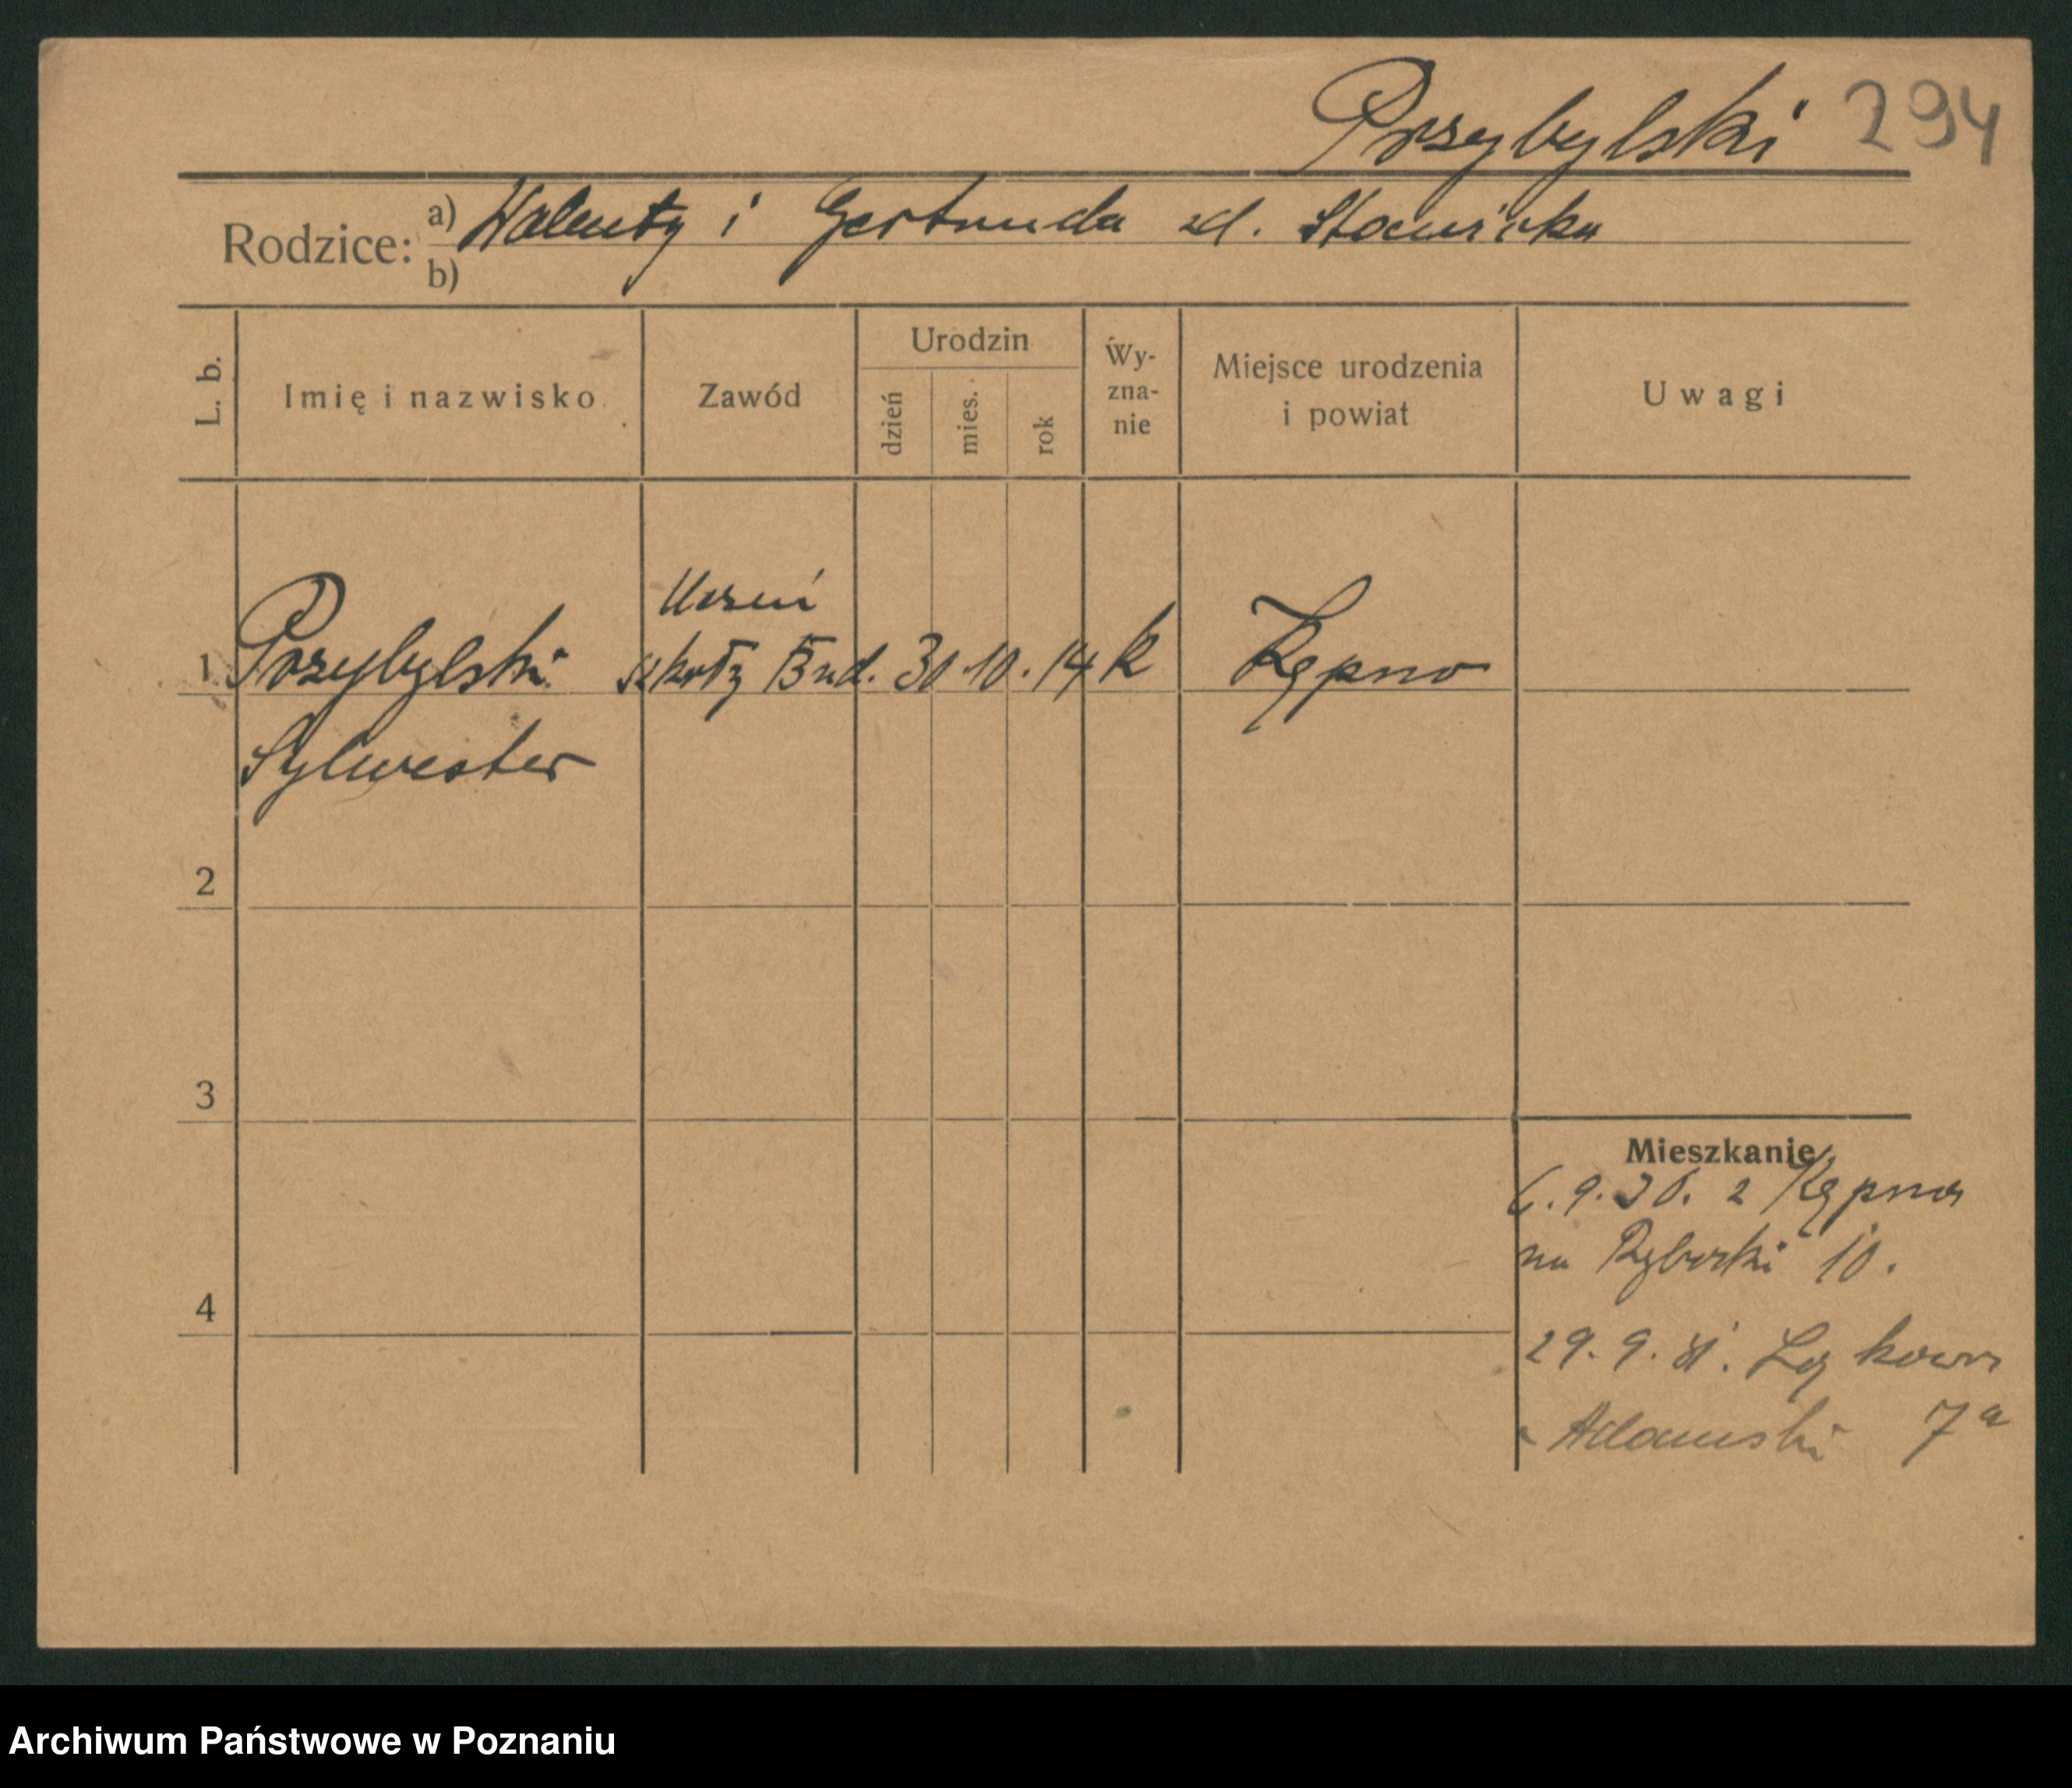 Przybylski 294
Rodzice: a) Walenty i Gertruda zd.
b)
L. b.
Imię i nazwisko
Zawód
Urodzin
dzień
mies.
rok
Wy-
zna-
nie
Miejsce urodzenia
i powiat
Uwagi
Uczeń
1 Przybylski szkoły Bud. 30. 10. 14 k Kępno
Sylwester
2
3
4
Mieszkanie
6. 9. 30. z Kępna
na Rybaki 10.
29. 9. 31. Łąkowa
Adamski 7a
Archiwum Państwowe w Poznaniu